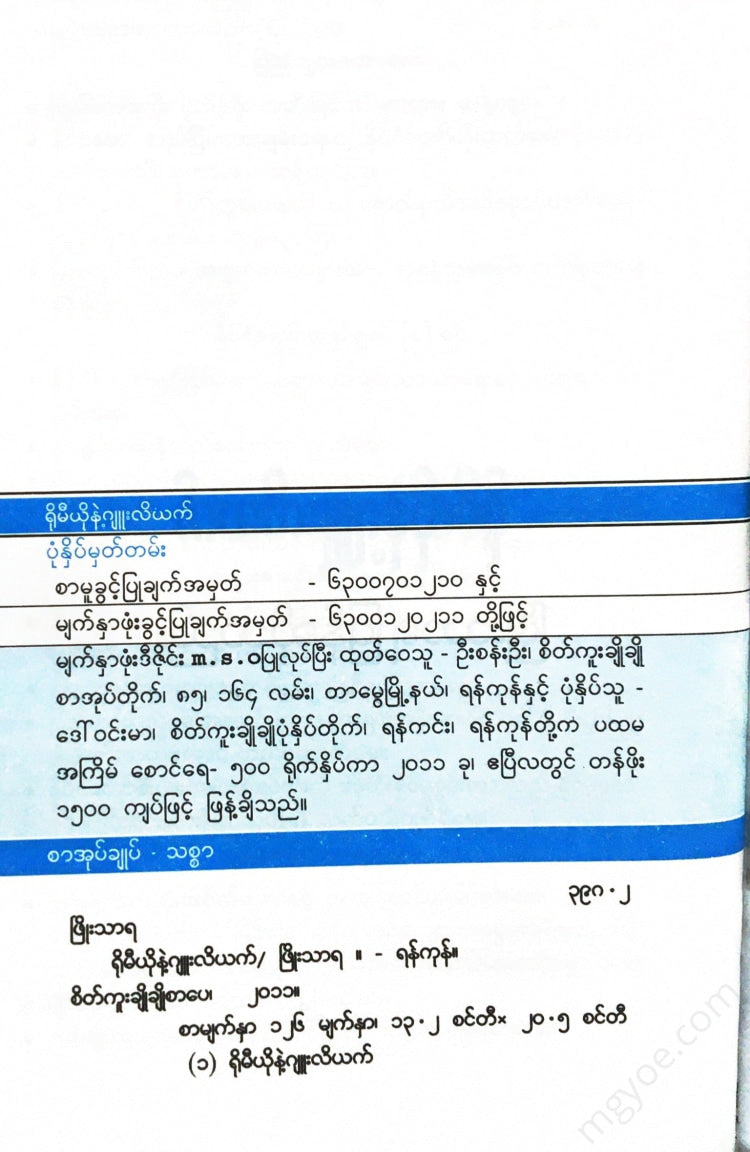 ရိုမီယိုနဲ့ဂျူးလိယက်
ပုံနှိပ်မှတ်တမ်း
စာမူခွင့်ပြုချက်အမှတ် - ၆၃၀၀၇၀၁၂၁၀ နှင့်
မျက်နှာဖုံးခွင့်ပြုချက်အမှတ် - ၆၃၀၀၁၂၀၂၁၁ တို့ဖြင့်
မျက်နှာဖုံးဒီဇိုင်း m.s.oပြုလုပ်ပြီး ထုတ်ဝေသူ - ဦးစန်းဦး၊ စိတ်ကူးချိုချို
စာအုပ်တိုက်၊ ၈၅၊ ၁၆၄ လမ်း၊ တာမွေမြို့နယ်၊ ရန်ကုန်နှင့် ပုံနှိပ်သူ -
ဒေါ်ဝင်းမာ၊ စိတ်ကူးချိုချိုပုံနှိပ်တိုက်၊ ရန်ကင်း၊ ရန်ကုန်တို့က ပထမ
အကြိမ် စောင်ရေ- ၅၀၀ ရိုက်နှိပ်ကာ ၂၀၁၁ ခု၊ ဧပြီလတွင် တန်ဖိုး
၁၅၀၀ ကျပ်ဖြင့် ဖြန့်ချိသည်။
စာအုပ်ချုပ် - သစ္စာ
၃၉၈ . ၂
ဖြိုးသာရ
ရိုမီယိုနဲ့ဂျူးလိယက်/ ဖြိုးသာရ ။ - ရန်ကုန်။
စိတ်ကူးချိုချိုစာပေ၊ ၂၀၁၁။
စာမျက်နှာ ၁၂၆ မျက်နှာ၊ ၁၃.၂ စင်တီ× ၂၀.၅ စင်တီ
(၁) ရိုမီယိုနဲ့ဂျူးလိယက်
mgyoe.com